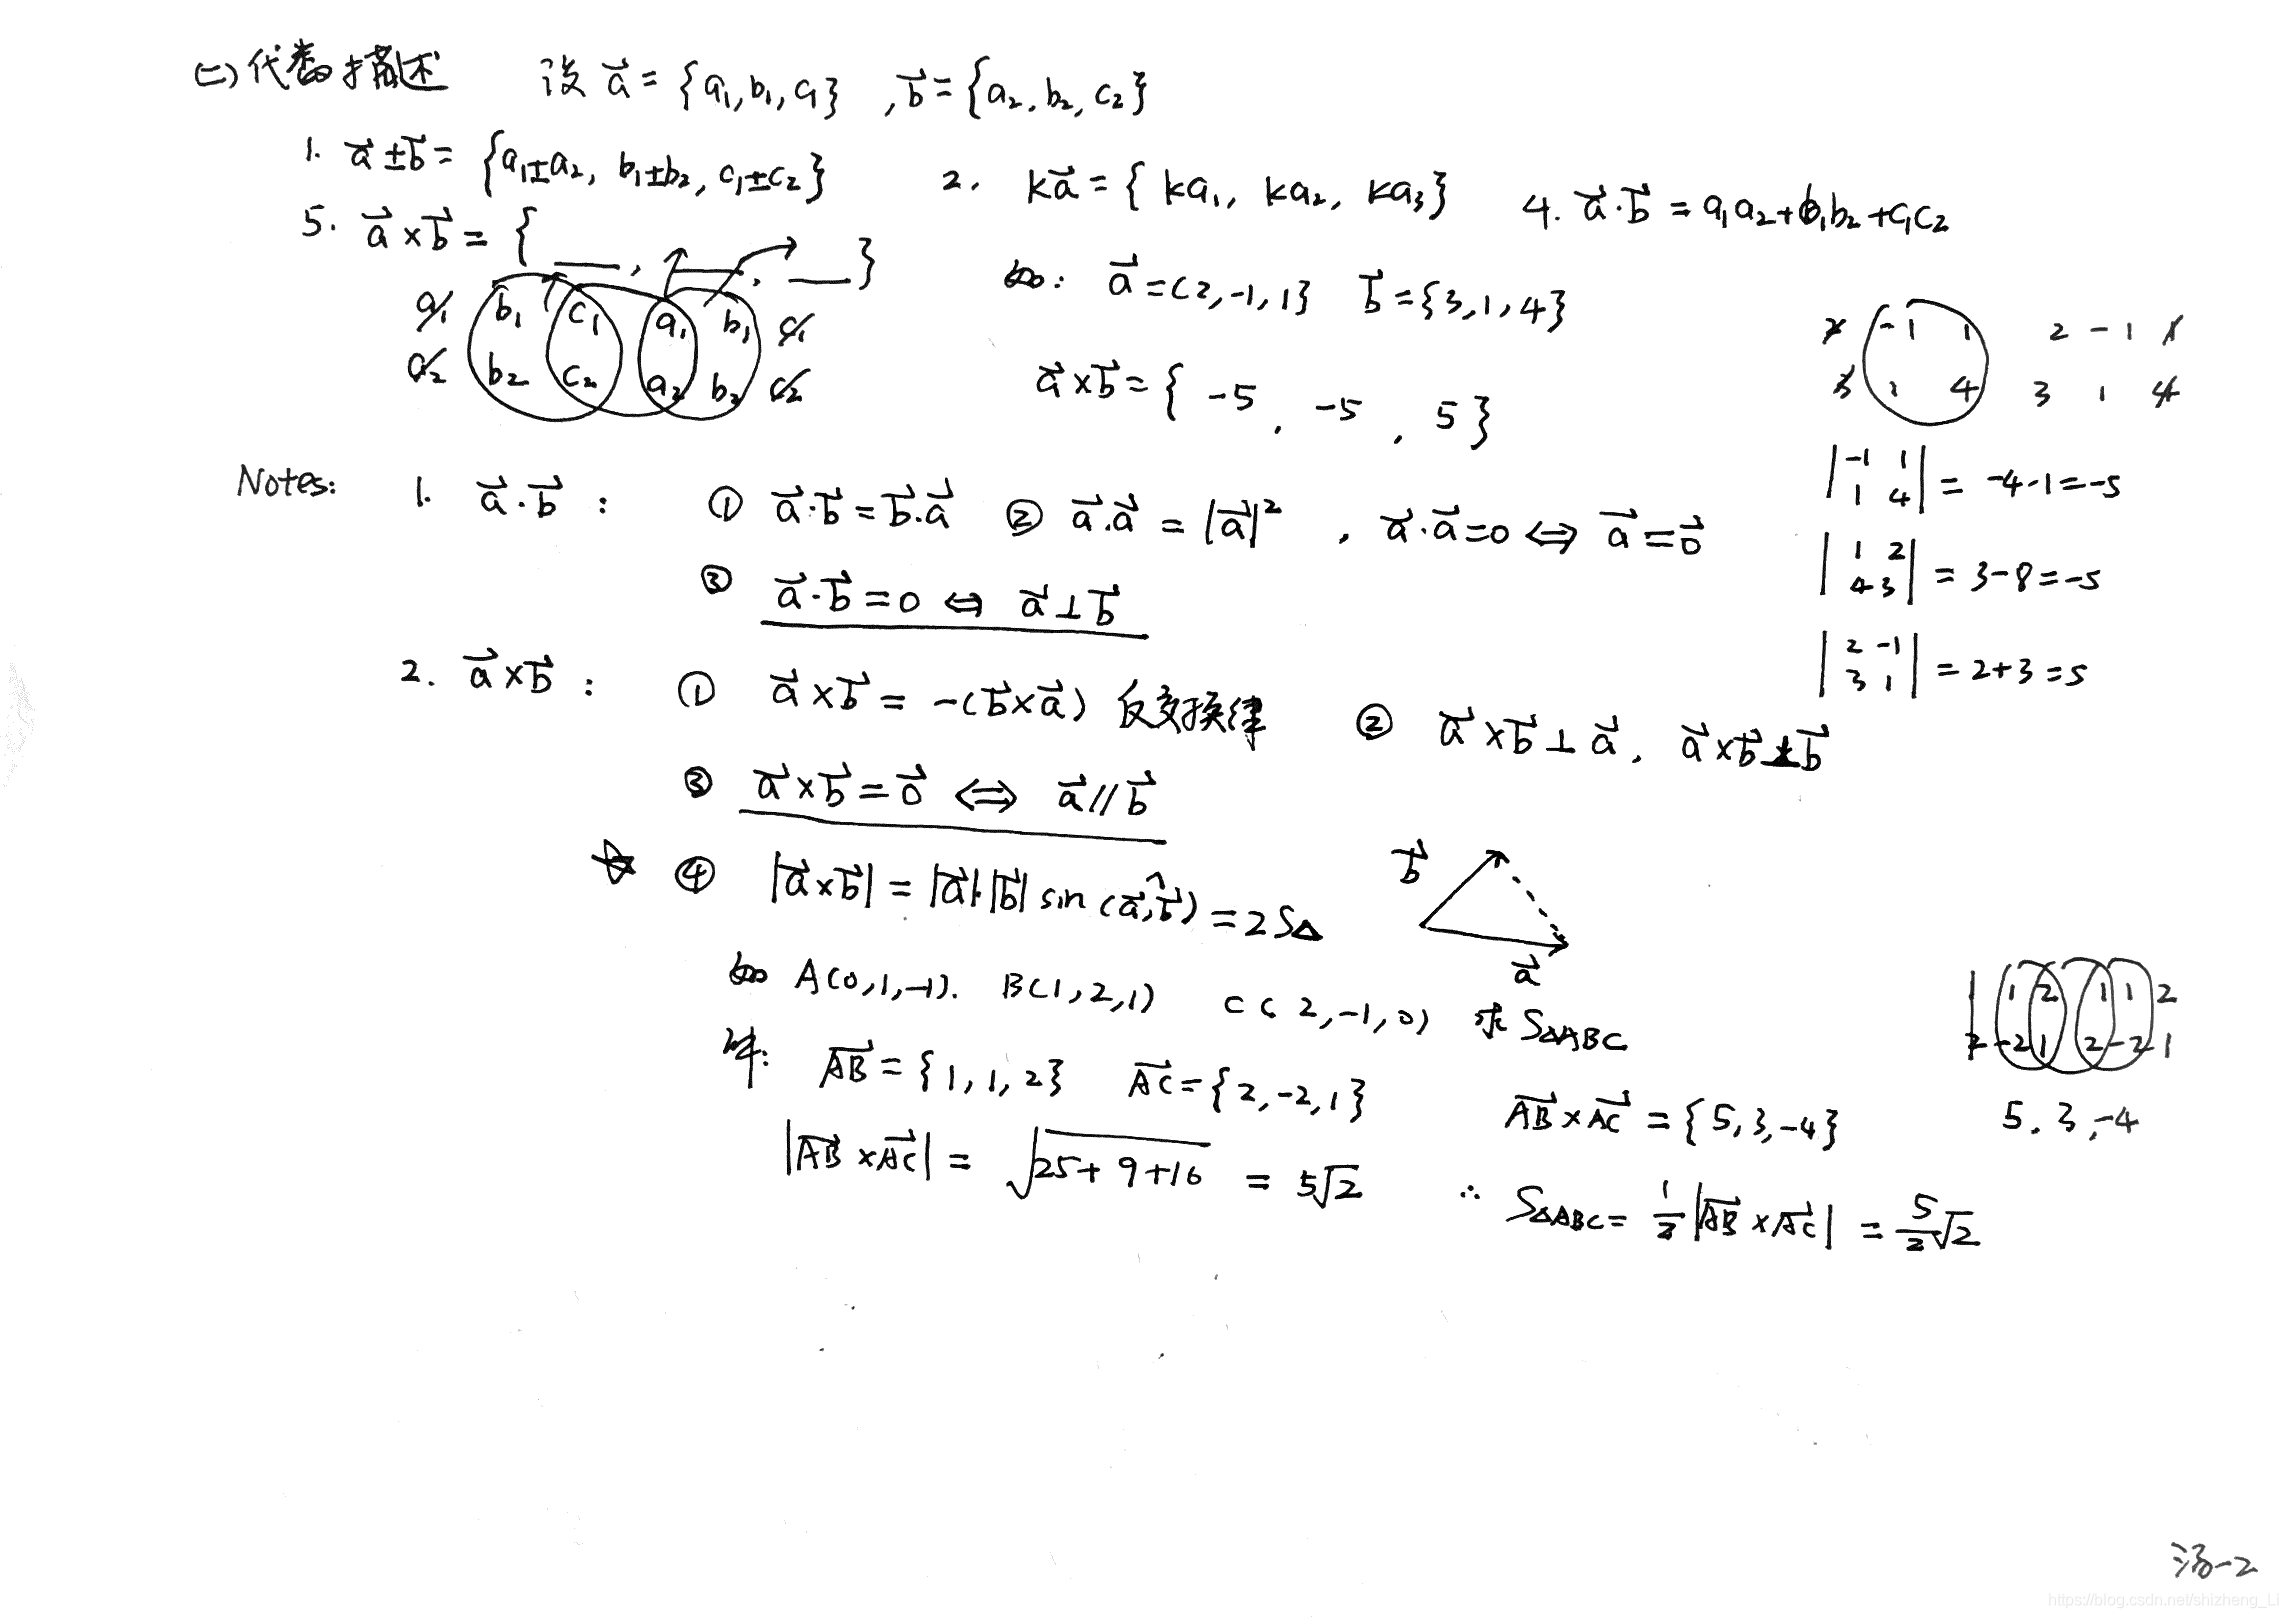 (二)代数描述 设 a⃗ = {a₁, b₁, c₁}, b⃗ = {a₂, b₂, c₂}
1. a⃗ ± b⃗ = {a₁±a₂, b₁±b₂, c₁±c₂} 2. ka⃗ = {ka₁, ka₂, ka₃} 4. a⃗·b⃗ = a₁a₂+b₁b₂+c₁c₂
5. a⃗ × b⃗ = { ___, ___, ___ }
a₁ b₁ c₁ a₁ b₁ c₁
a₂ b₂ c₂ a₂ b₂ c₂
如: a⃗ = (2, -1, 1} b⃗ = {3, 1, 4}
2 -1 1 2 -1 1
3 1 4 3 1 4
a⃗ × b⃗ = { -5, -5, 5 }
|-1 1|
| 1 4| = -4-1 = -5
|1 2|
|4 3| = 3-8 = -5
|2 -1|
|3 1| = 2+3 = 5
Notes: 1. a⃗·b⃗: ① a⃗·b⃗ = b⃗·a⃗ ② a⃗·a⃗ = |a⃗|², a⃗·a⃗=0 ⇔ a⃗ = 0⃗
③ a⃗·b⃗ = 0 ⇔ a⃗ ⊥ b⃗
2. a⃗ × b⃗: ① a⃗ × b⃗ = -(b⃗ × a⃗) 反交换律 ② a⃗ × b⃗ ⊥ a⃗, a⃗ × b⃗ ⊥ b⃗
③ a⃗ × b⃗ = 0⃗ ⇔ a⃗ // b⃗
☆ ④ |a⃗ × b⃗| = |a⃗|·|b⃗| sin(a⃗,^b⃗) = 2S△
b⃗
a⃗
如 A(0,1,-1). B(1,2,1) C(2,-1,0) 求 S△ABC
解: AB⃗ = {1, 1, 2} AC⃗ = {2, -2, 1} AB⃗ × AC⃗ = {5, 3, -4}
1 1 2 1 1 2
2 -2 1 2 -2 1
5, 3, -4
|AB⃗ × AC⃗| = √(25+9+16) = 5√2 ∴ S△ABC = 1/2 |AB⃗ × AC⃗| = 5/2 √2
汤-2
https://blog.csdn.net/shizheng_Li